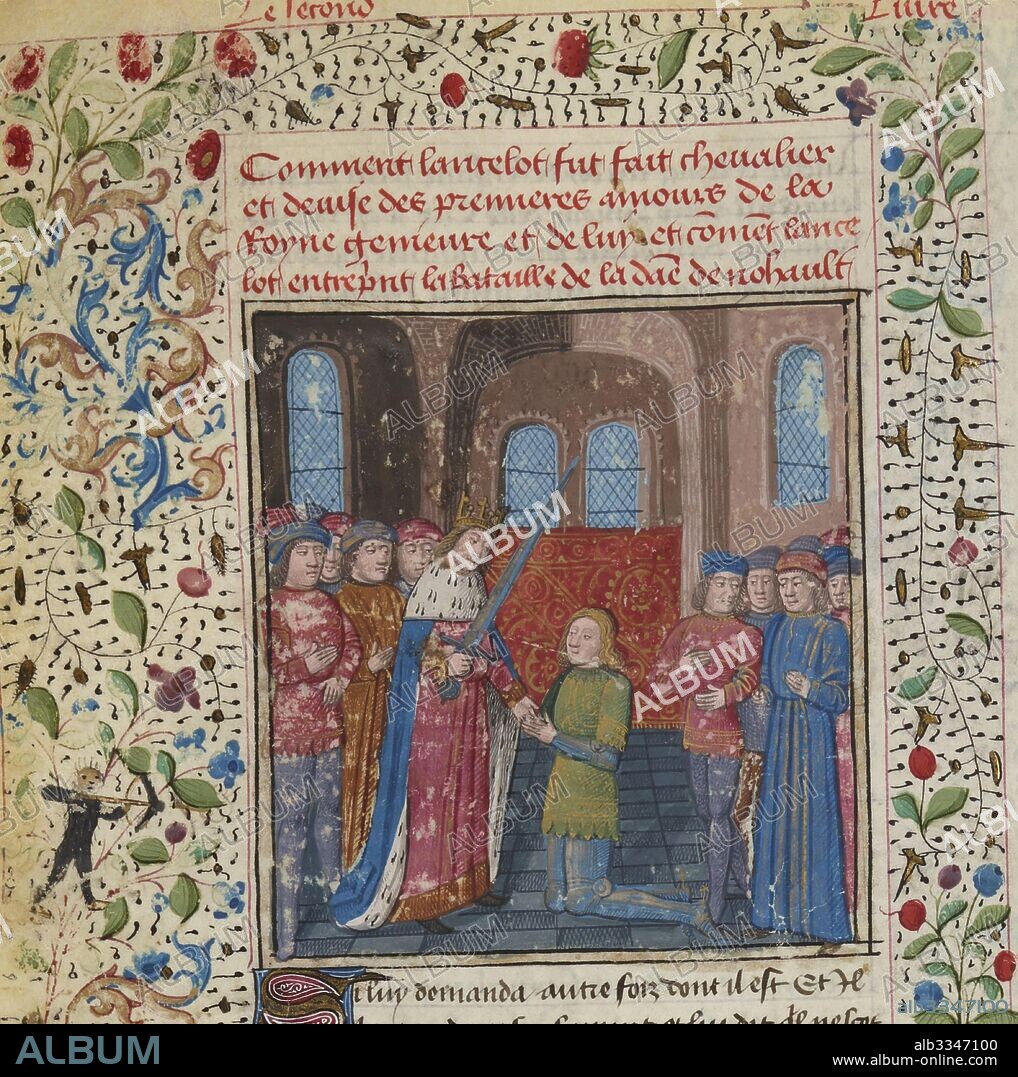 Le second Livre
Comment lancelot fut fait chevalier
et devise des premieres amours de la
Royne genievre et de luy et cōmēt lance
lot entreprint la Bataille de la dāe de nohault
luy demanda autre foiz dont il est Et Il
ALBUM
alb3347100
alb3347100
www.album-online.com